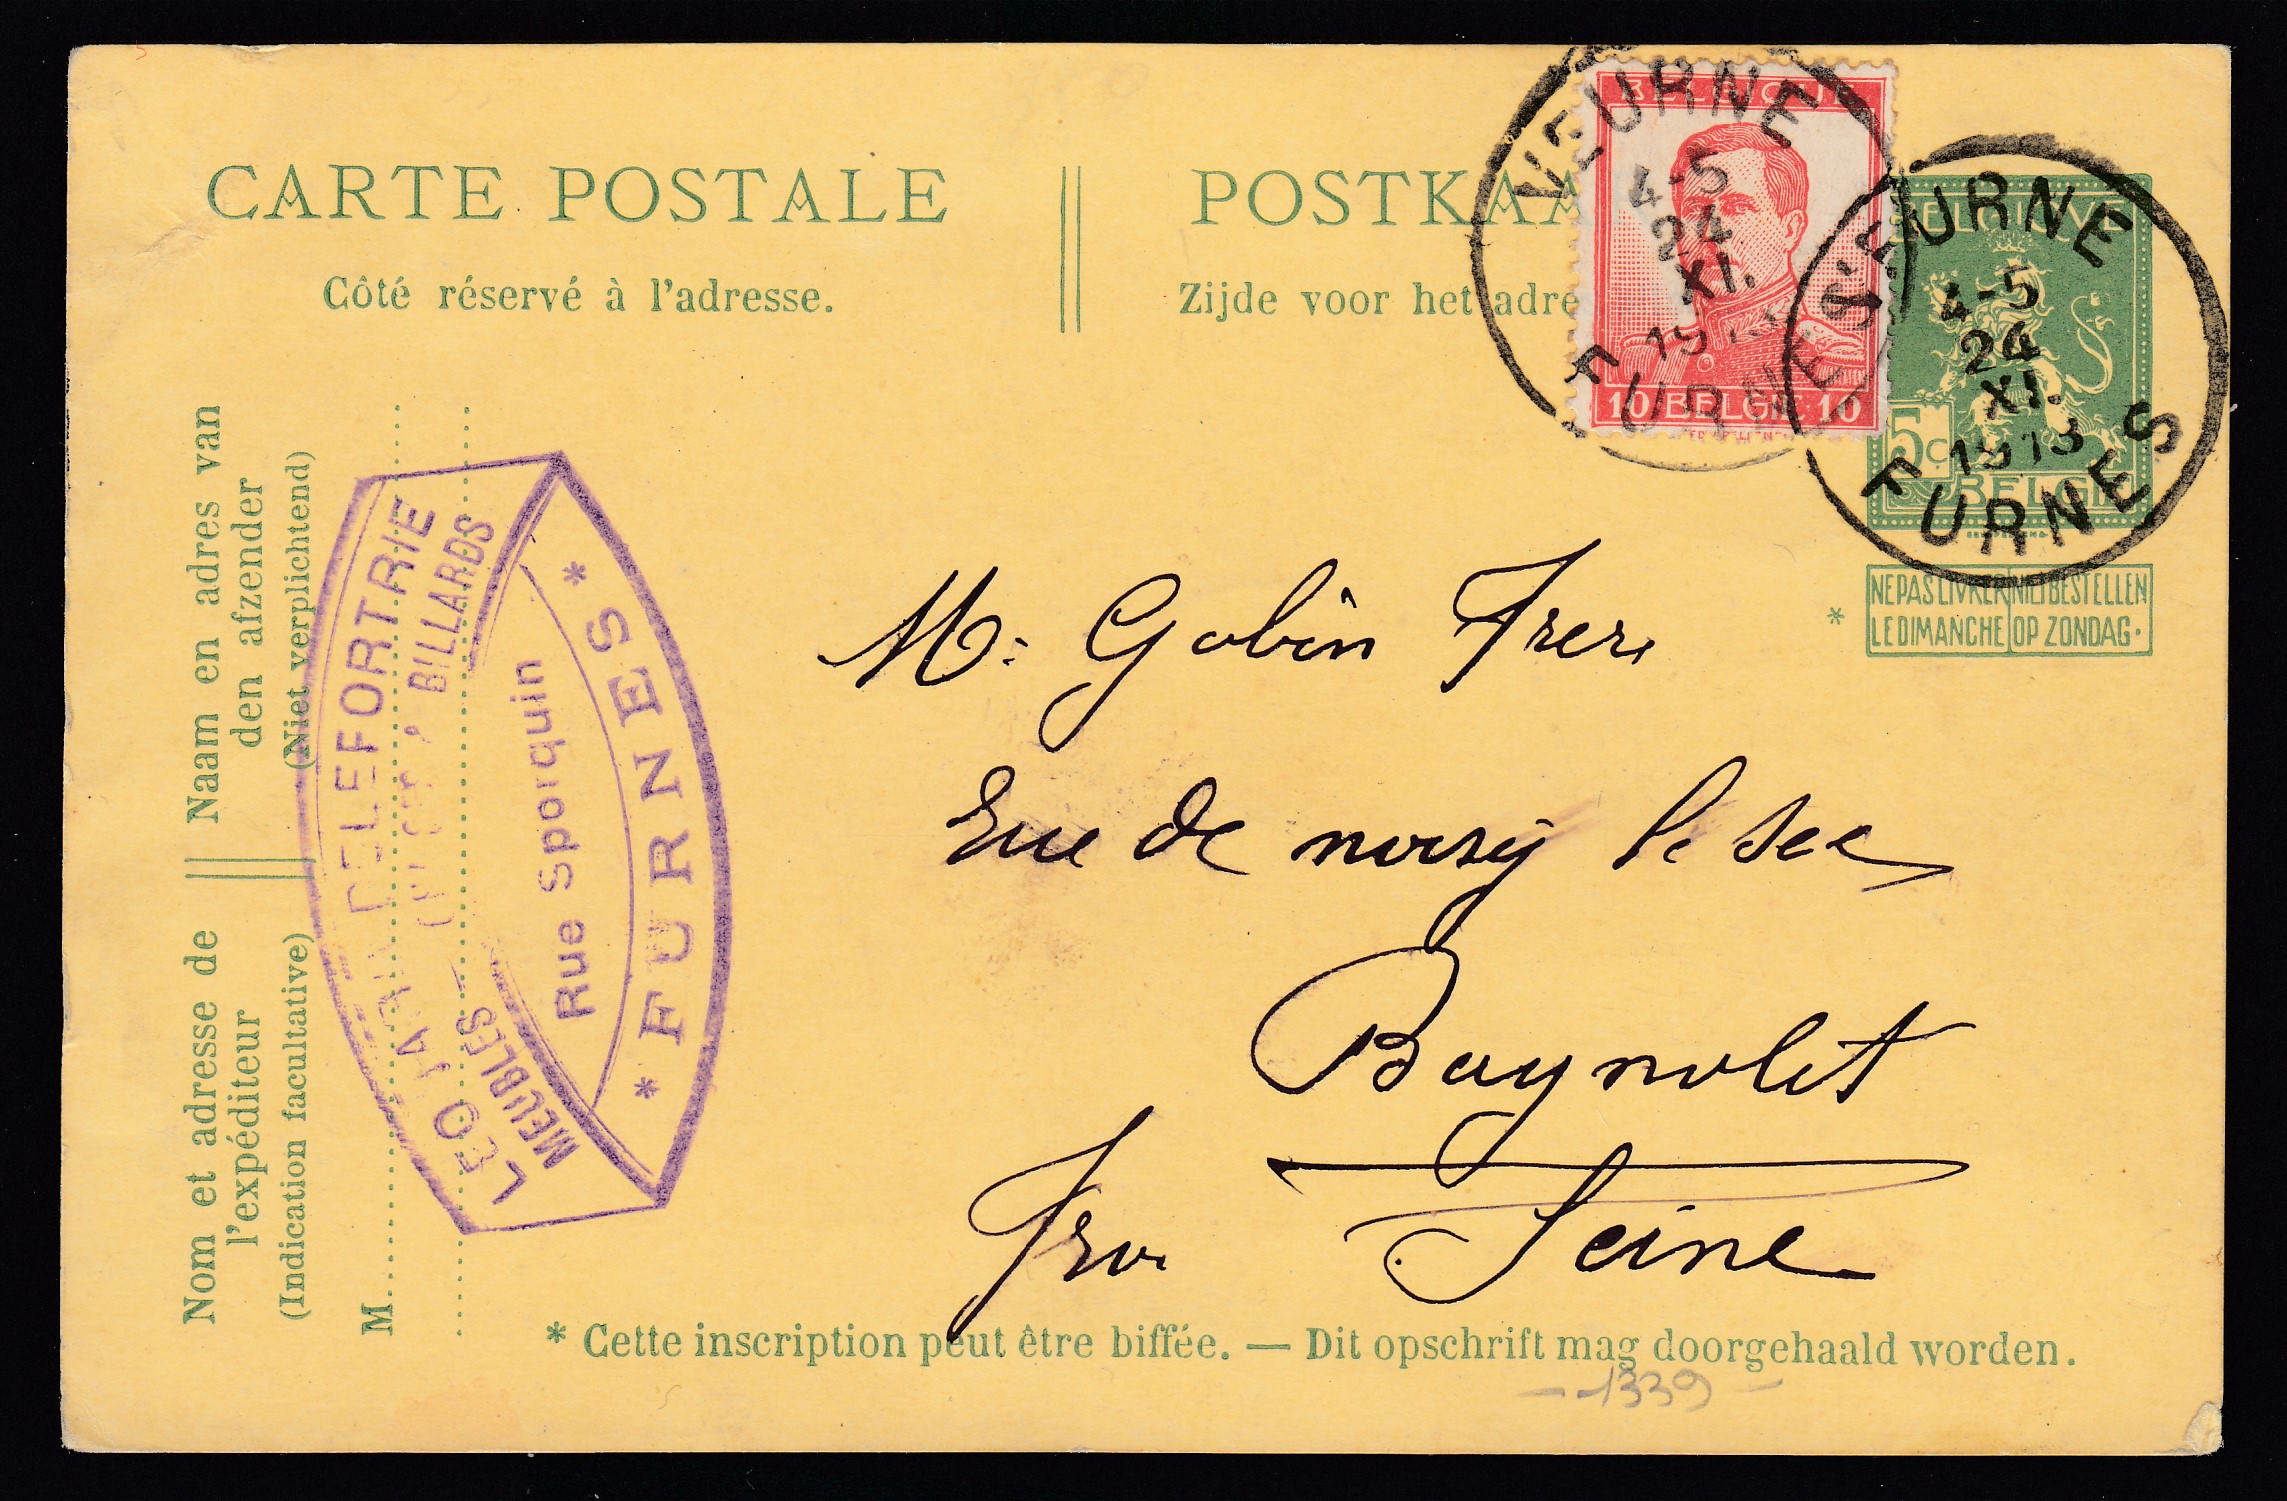 CARTE POSTALE
Côté réservé à l'adresse.
POSTKAA
Zijde voor het adre
BELGIQUE
10 BELGIË 10
VEURNE
4-5
24
XI.
FURNES
BELGIQUE
5c
BELGIË
VEURNE
4-5
24
XI.
1913
FURNES
* NE PAS LIVRER LE DIMANCHE
NIET BESTELLEN OP ZONDAG.
Naam en adres van
den afzender
(Niet verplichtend)
Nom et adresse de
l'expéditeur
(Indication facultative)
M
LEO DELEFORTRIE
MEUBLES BILLARDS
Rue Sporquin
* FURNES *
M. Gobin Frere
Rue de noisy le sec
Bagnolet
Seine
* Cette inscription peut être biffée. — Dit opschrift mag doorgehaald worden.
-1339-